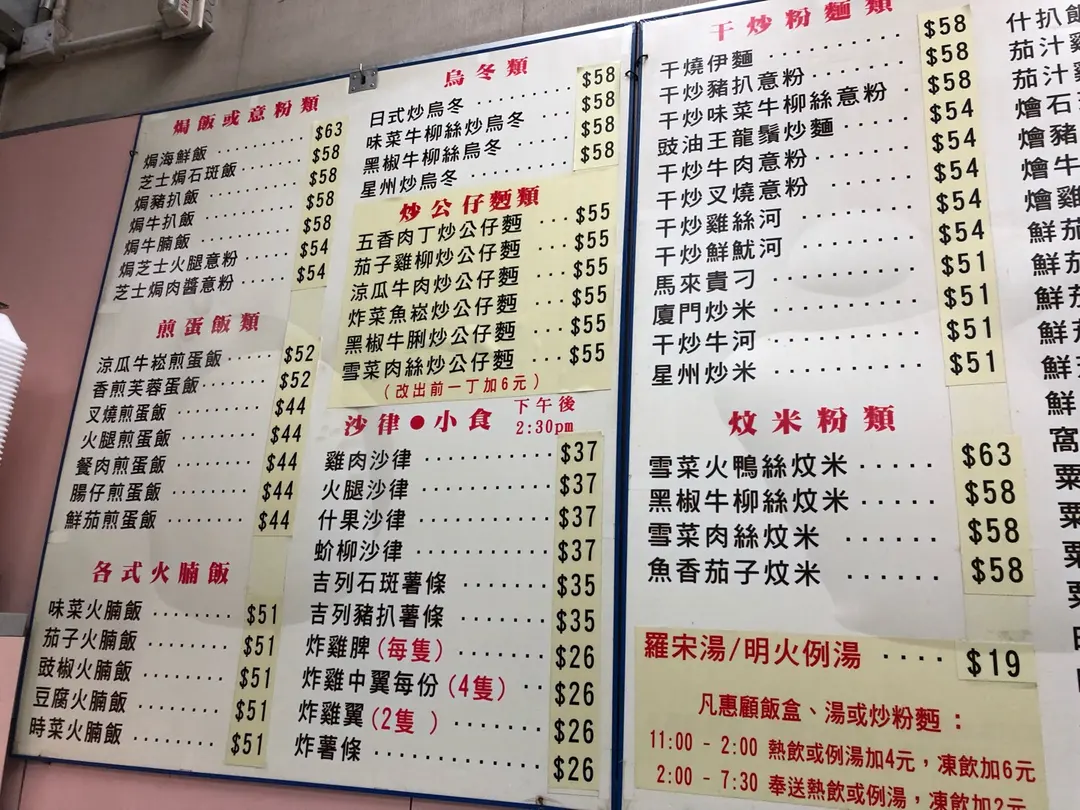 焗飯或意粉類
焗海鮮飯 $63
芝士焗石斑飯 $58
焗豬扒飯 $58
焗牛扒飯 $58
焗牛腩飯 $58
焗芝士火腿意粉 $54
芝士焗肉醬意粉 $54
煎蛋飯類
涼瓜牛崧煎蛋飯 $52
香煎芙蓉蛋飯 $52
叉燒煎蛋飯 $44
火腿煎蛋飯 $44
餐肉煎蛋飯 $44
腸仔煎蛋飯 $44
鮮茄煎蛋飯 $44
各式火腩飯
味菜火腩飯 $51
茄子火腩飯 $51
豉椒火腩飯 $51
豆腐火腩飯 $51
時菜火腩飯 $51
烏冬類
日式炒烏冬 $58
味菜牛柳絲炒烏冬 $58
黑椒牛柳絲烏冬 $58
星州炒烏冬 $58
炒公仔麵類
五香肉丁炒公仔麵 $55
茄子雞柳炒公仔麵 $55
涼瓜牛肉炒公仔麵 $55
炸菜魚崧炒公仔麵 $55
黑椒牛脷炒公仔麵 $55
雪菜肉絲炒公仔麵 $55
(改出前一丁加6元)
沙律●小食 下午後 2:30pm
雞肉沙律 $37
火腿沙律 $37
什果沙律 $37
蚧柳沙律 $37
吉列石斑薯條 $35
吉列豬扒薯條 $35
炸雞脾(每隻) $26
炸雞中翼每份(4隻) $26
炸雞翼(2隻) $26
炸薯條 $26
干炒粉麵類
干燒伊麵 $58
干炒豬扒意粉 $58
干炒味菜牛柳絲意粉 $58
豉油王龍鬚炒麵 $54
干炒牛肉意粉 $54
干炒叉燒意粉 $54
干炒雞絲河 $54
干炒鮮魷河 $54
馬來貴刁 $51
廈門炒米 $51
干炒牛河 $51
星州炒米 $51
炆米粉類
雪菜火鴨絲炆米 $63
黑椒牛柳絲炆米 $58
雪菜肉絲炆米 $58
魚香茄子炆米 $58
羅宋湯/明火例湯 $19
凡惠顧飯盒、湯或炒粉麵：
11:00 - 2:00 熱飲或例湯加4元，凍飲加6元
2:00 - 7:30 奉送熱飲或例湯，凍飲加2元
什扒飯
茄汁雞
茄汁
燴石
燴豬
燴牛
燴雞
鮮茄
鮮茄
鮮茄
鮮茄
鮮
鮮
窩
粟
粟
粟
粟